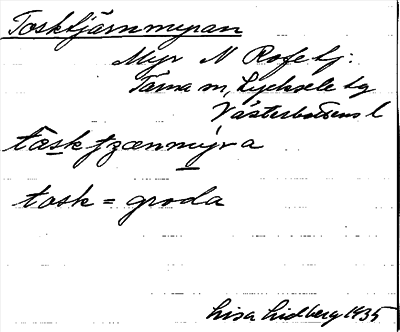 Tosktjärnmyran
Myr N Rosetj:
Tärna sn, Lycksele lg
Västerbottens l
task tzænmýra
tosk = groda
Lisa Lidberg 1935